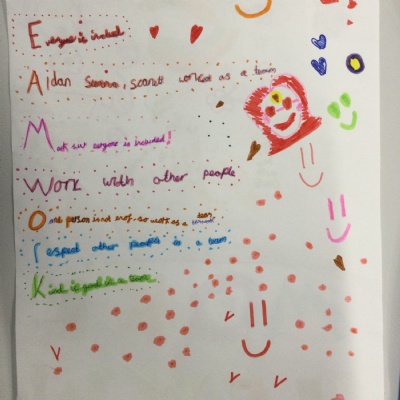 Everyone is included
Aidan Searra, scarett worked as a team
Mack sure everyone is included!
Work with other people
One person is not enof. so work as a team
respect other people in a team
Kind is good in a team